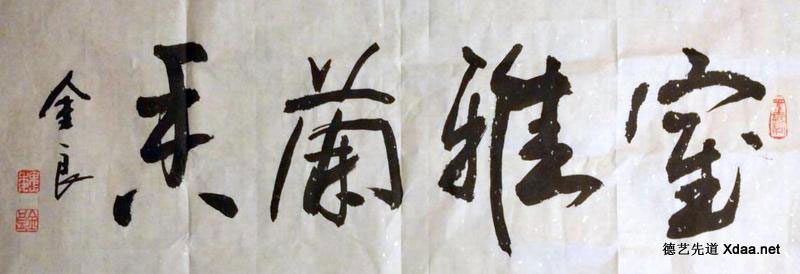 室雅蘭香
金良
德艺先道 Xdaa.net